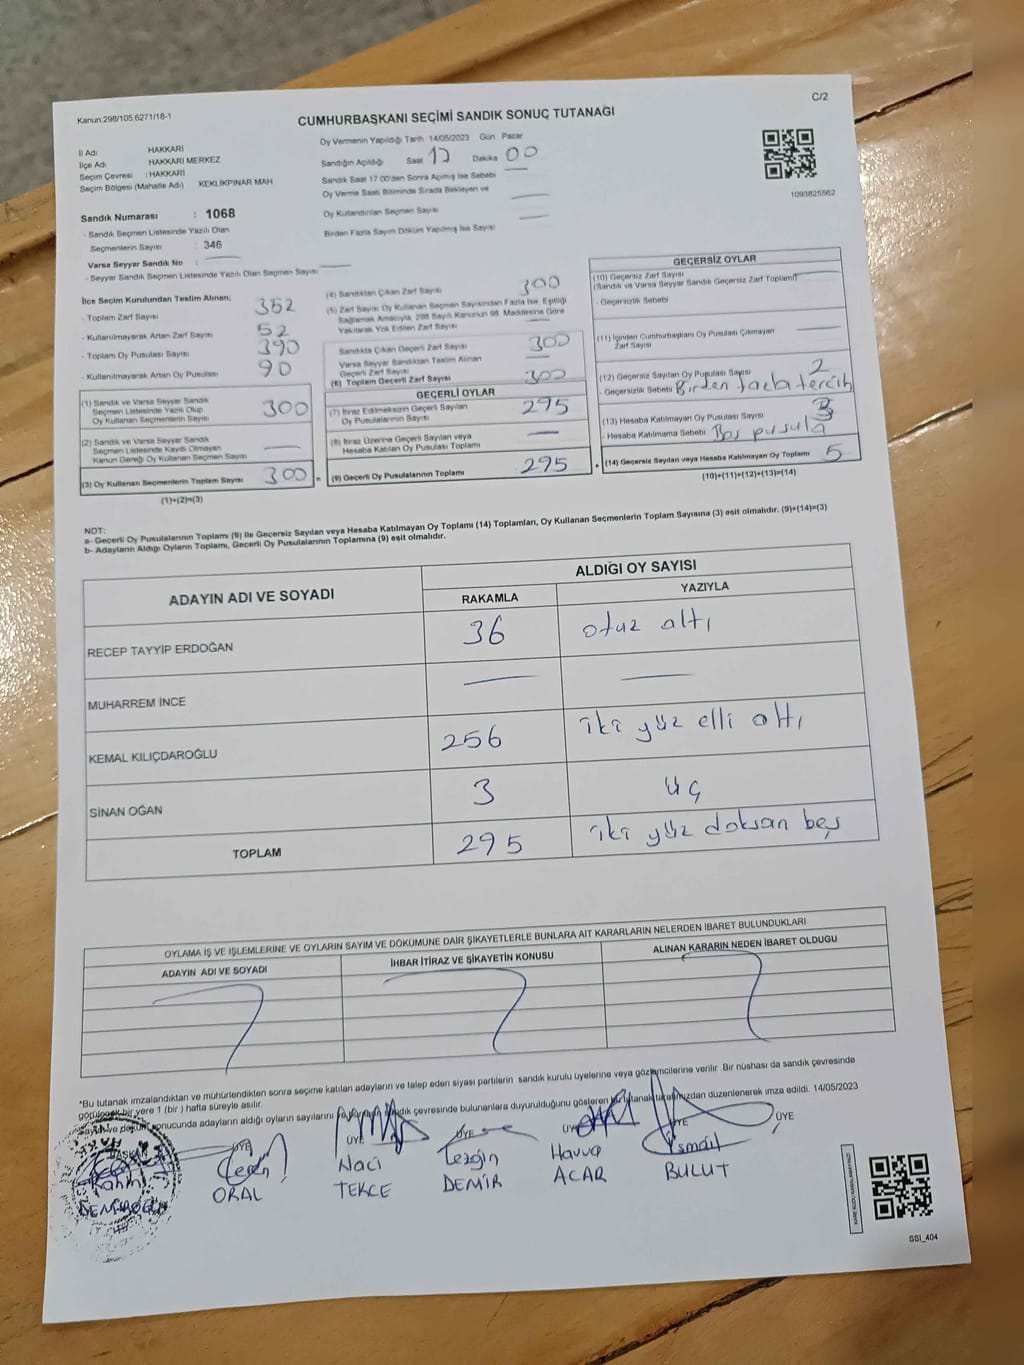 Kanun.298/105.6271/18-1
C/2
CUMHURBAŞKANI SEÇİMİ SANDIK SONUÇ TUTANAĞI
İl Adı HAKKARİ
İlçe Adı HAKKARİ MERKEZ
Seçim Çevresi : HAKKARİ
Seçim Bölgesi (Mahalle Adı) KEKLİKPINAR MAH
Sandık Numarası : 1068
- Sandık Seçmen Listesinde Yazılı Olan
Seçmenlerin Sayısı : 346
Varsa Seyyar Sandık No :
- Seyyar Sandık Seçmen Listesinde Yazılı Olan Seçmen Sayısı
Oy Vermenin Yapıldığı Tarih 14/05/2023 Gün Pazar
Sandığın Açıldığı Saat 17 Dakika 00
Sandık Saat 17.00'den Sonra Açılmış İse Sebebi
Oy Verme Saati Bitiminde Sırada Bekleyen ve
Oy Kullandırılan Seçmen Sayısı
Birden Fazla Sayım Döküm Yapılmış İse Sayısı
1093825562
İlçe Seçim Kurulundan Teslim Alınan;
- Toplam Zarf Sayısı 352
- Kullanılmayarak Artan Zarf Sayısı 52
- Toplam Oy Pusulası Sayısı 390
- Kullanılmayarak Artan Oy Pusulası 90
(1) Sandık ve Varsa Seyyar Sandık
Seçmen Listesinde Yazılı Olup
Oy Kullanan Seçmenlerin Sayısı 300
(2) Sandık ve Varsa Seyyar Sandık
Seçmen Listesinde Kaydı Olmayan
Kanun Gereği Oy Kullanan Seçmen Sayısı
(3) Oy Kullanan Seçmenlerin Toplam Sayısı 300
(1)+(2)=(3)
(4) Sandıktan Çıkan Zarf Sayısı 300
(5) Zarf Sayısı Oy Kullanan Seçmen Sayısından Fazla İse, Eşitliği
Sağlamak Amacıyla, 298 Sayılı Kanunun 98. Maddesine Göre
Yakılarak Yok Edilen Zarf Sayısı
Sandıkta Çıkan Geçerli Zarf Sayısı 300
Varsa Seyyar Sandıktan Teslim Alınan
Geçerli Zarf Sayısı
(6) Toplam Geçerli Zarf Sayısı 300
GEÇERLİ OYLAR
(7) İtiraz Edilmeksizin Geçerli Sayılan
Oy Pusulalarının Sayısı 295
(8) İtiraz Üzerine Geçerli Sayılan veya
Hesaba Katılan Oy Pusulası Toplamı
(9) Geçerli Oy Pusulalarının Toplamı 295
GEÇERSİZ OYLAR
(10) Geçersiz Zarf Sayısı
(Sandık ve Varsa Seyyar Sandık Geçersiz Zarf Toplamı)
- Geçersizlik Sebebi
(11) İçinden Cumhurbaşkanı Oy Pusulası Çıkmayan
Zarf Sayısı
(12) Geçersiz Sayılan Oy Pusulası Sayısı 2
- Geçersizlik Sebebi Birden fazla tercih
(13) Hesaba Katılmayan Oy Pusulası Sayısı 3
- Hesaba Katılmama Sebebi Boş pusula
(14) Geçersiz Sayılan veya Hesaba Katılmayan Oy Toplamı 5
(10)+(11)+(12)+(13)=(14)
NOT:
a- Geçerli Oy Pusulalarının Toplamı (9) ile Geçersiz Sayılan veya Hesaba Katılmayan Oy Toplamı (14) Toplamları, Oy Kullanan Seçmenlerin Toplam Sayısına (3) eşit olmalıdır. (9)+(14)=(3)
b- Adayların Aldığı Oyların Toplamı, Geçerli Oy Pusulalarının Toplamına (9) eşit olmalıdır.
ADAYIN ADI VE SOYADI
ALDIĞI OY SAYISI
RAKAMLA YAZIYLA
RECEP TAYYİP ERDOĞAN 36 otuz altı
MUHARREM İNCE
KEMAL KILIÇDAROĞLU 256 iki yüz elli altı
SİNAN OĞAN 3 üç
TOPLAM 295 iki yüz doksan beş
OYLAMA İŞ VE İŞLEMLERİNE VE OYLARIN SAYIM VE DÖKÜMÜNE DAİR ŞİKAYETLERLE BUNLARA AİT KARARLARIN NELERDEN İBARET BULUNDUKLARI
ADAYIN ADI VE SOYADI İHBAR İTİRAZ VE ŞİKAYETİN KONUSU ALINAN KARARIN NEDEN İBARET OLDUĞU
*Bu tutanak imzalandıktan ve mühürlendikten sonra seçime katılan adayların ve talep eden siyasi partilerin sandık kurulu üyelerine veya gözlemcilerine verilir. Bir nüshası da sandık çevresinde
görülecek bir yere 1 (bir ) hafta süreyle asılır.
Sayım ve döküm sonucunda adayların aldığı oyların sayılarını sandık çevresinde bulunanlara duyurulduğunu gösteren bu tutanak tarafımızdan düzenlenerek imza edildi. 14/05/2023
BAŞKAN ÜYE ÜYE ÜYE ÜYE ÜYE ÜYE
Rahmi Ceren Naci Lezgin Havva İsmail
ORAL TEKCE DEMİR ACAR BULUT
KARE KODU KARALAMAYINIZ!
SSI_404